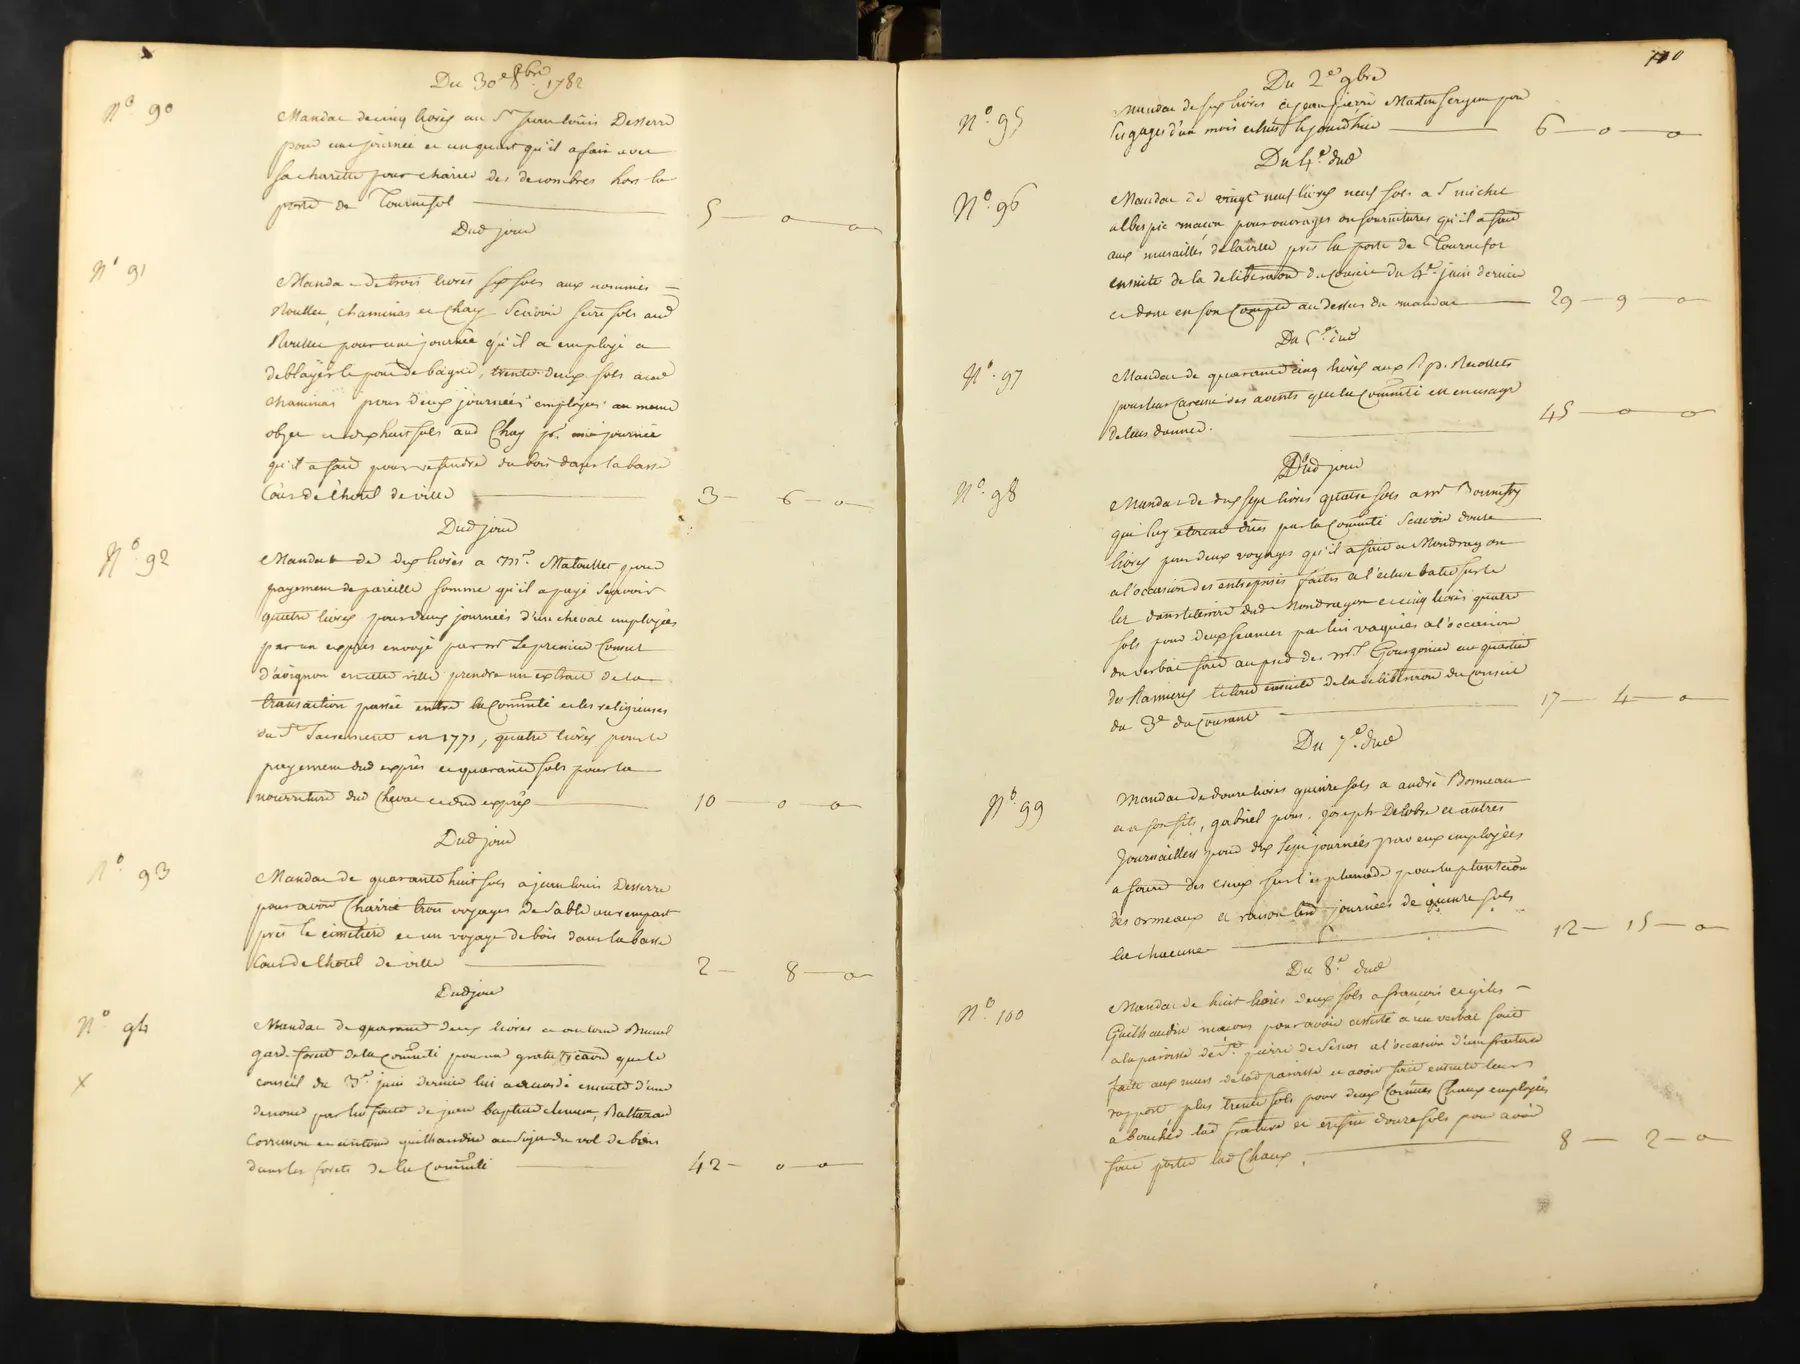 Du 30e 8bre 1782
N° 90
Mandat de cinq livres au Sr Jean louis Desserre
pour une journée et un quart qu'il a fait avec
sa charette pour charier des decombres hors la
porte de Tournefol
5 — o — o
Dud jour
N° 91
Mandat de trois livres six sols aux nommés —
Roullet, chaminas et Chay Scavoir seize sols aud
Roullet pour une journée qu'il a employé a
deblayer le pont de bagne, trente deux sols aud
chaminas pour deux journées employées au meme
objet et dix huit sols aud Chay pr. une journée
qu'il a fait pour refendre du bois dans la basse
Cour de l'hotel de ville
3 — 6 — o
Dud jour
N° 92
Mandat de dix livres a Mr. Matoullet pour
payement de pareille somme qu'il a payé Scavoir
quatre livres pour deux journées d'un cheval employées
par un exprès envoyé par mr Le premier Consul
d'avignon en cette ville prendre un extrait de la
transaction passée entre la Commté et les religieuses
du St Sacrement en 1771, quatre livres pour le
payement dud exprès et quarante sols pour la
nourriture dud Cheval et dud exprès
10 — o — o
Dud jour
N° 93
Mandat de quarante huit sols a jean louis Desserre
pour avoir Charrié trois voyages de Sable au rempart
près le cimetiere et un voyage de bois dans la basse
Cour de l'hotel de ville
2 — 8 — o
Dud jour
N° 94
Mandat de quarante deux livres et antoine Brunel
gard-foret de la Commté pour une gratification que le
x
conseil du 3e juin dernier lui a accordé ensuite d'une
denonce par lui faite de jean baptiste clement, Baltezard
Corrumon et antoine guilhaudin au Sujet du vol de bois
dans les forets de la Commté
42 — o — o
110
Du 2e 9bre
N° 95
Mandat de six livres a jean pierre Martin sergent pour
ses gages d'un mois echus le jourd'hui
6 — o — o
Du 4e dud
N° 96
Mandat de vingt neuf livres neuf sols a St michel
albespic macon pour ouvrages ou fournitures qu'il a fait
aux murailles de la ville près la porte de Tournefor
ensuite de la deliberation du Conseil du 4e juin dernier
et dont en son Compte au dessus du mandat
29 — 9 — o
Du 5e dud
N° 97
Mandat de quarante cinq livres aux R. p. Recollets
pour leur Careme des avents que la Commté est en usage
de leur donner.
45 — o — o
Dud jour
N° 98
Mandat de dix sept livres quatre sols a mr Bonnefoy
qui luy etoient dûes par la Commté Scavoir douze
livres pour deux voyages qu'il a fait a Mondragon
a l'occasion des entreprises faites a l'ecluse batie sur le
lez dans le terroir dud Mondragon et cinq livres quatre
sols pour deux seances par lui vaquées a l'occasion
du verbal fait au pied des mrs Gourgonier au quartier
des Ramieres le tout ensuite de la deliberation du Conseil
du 3e du courant
17 — 4 — o
Du 7e dud
N° 99
Mandat de douze livres quinze sols a andré Bonneau
et a son fils, gabriel pons. Joseph Delobre et autres
Journailliers pour dix sept journées par eux employées
a faire des creux sur l'esplanade pour la plantation
des ormeaux et raison lesd journées de quinze sols
la chacune
12 — 15 — o
Du 8e dud
N° 100
Mandat de huit livres deux sols a francois et gilles —
Guilhaudin macons pour avoir assisté a un verbal fait
a la paroisse de St. pierre de Senos a l'occasion d'une fracture
faite aux murs de lad paroisse et avoir fait ensuite leur
rapport plus trente sols pour deux Cornues Chaux employées
a boucher lad fracture et enfin douze sols pour avoir
fait porter lad Chaux.
8 — 2 — o